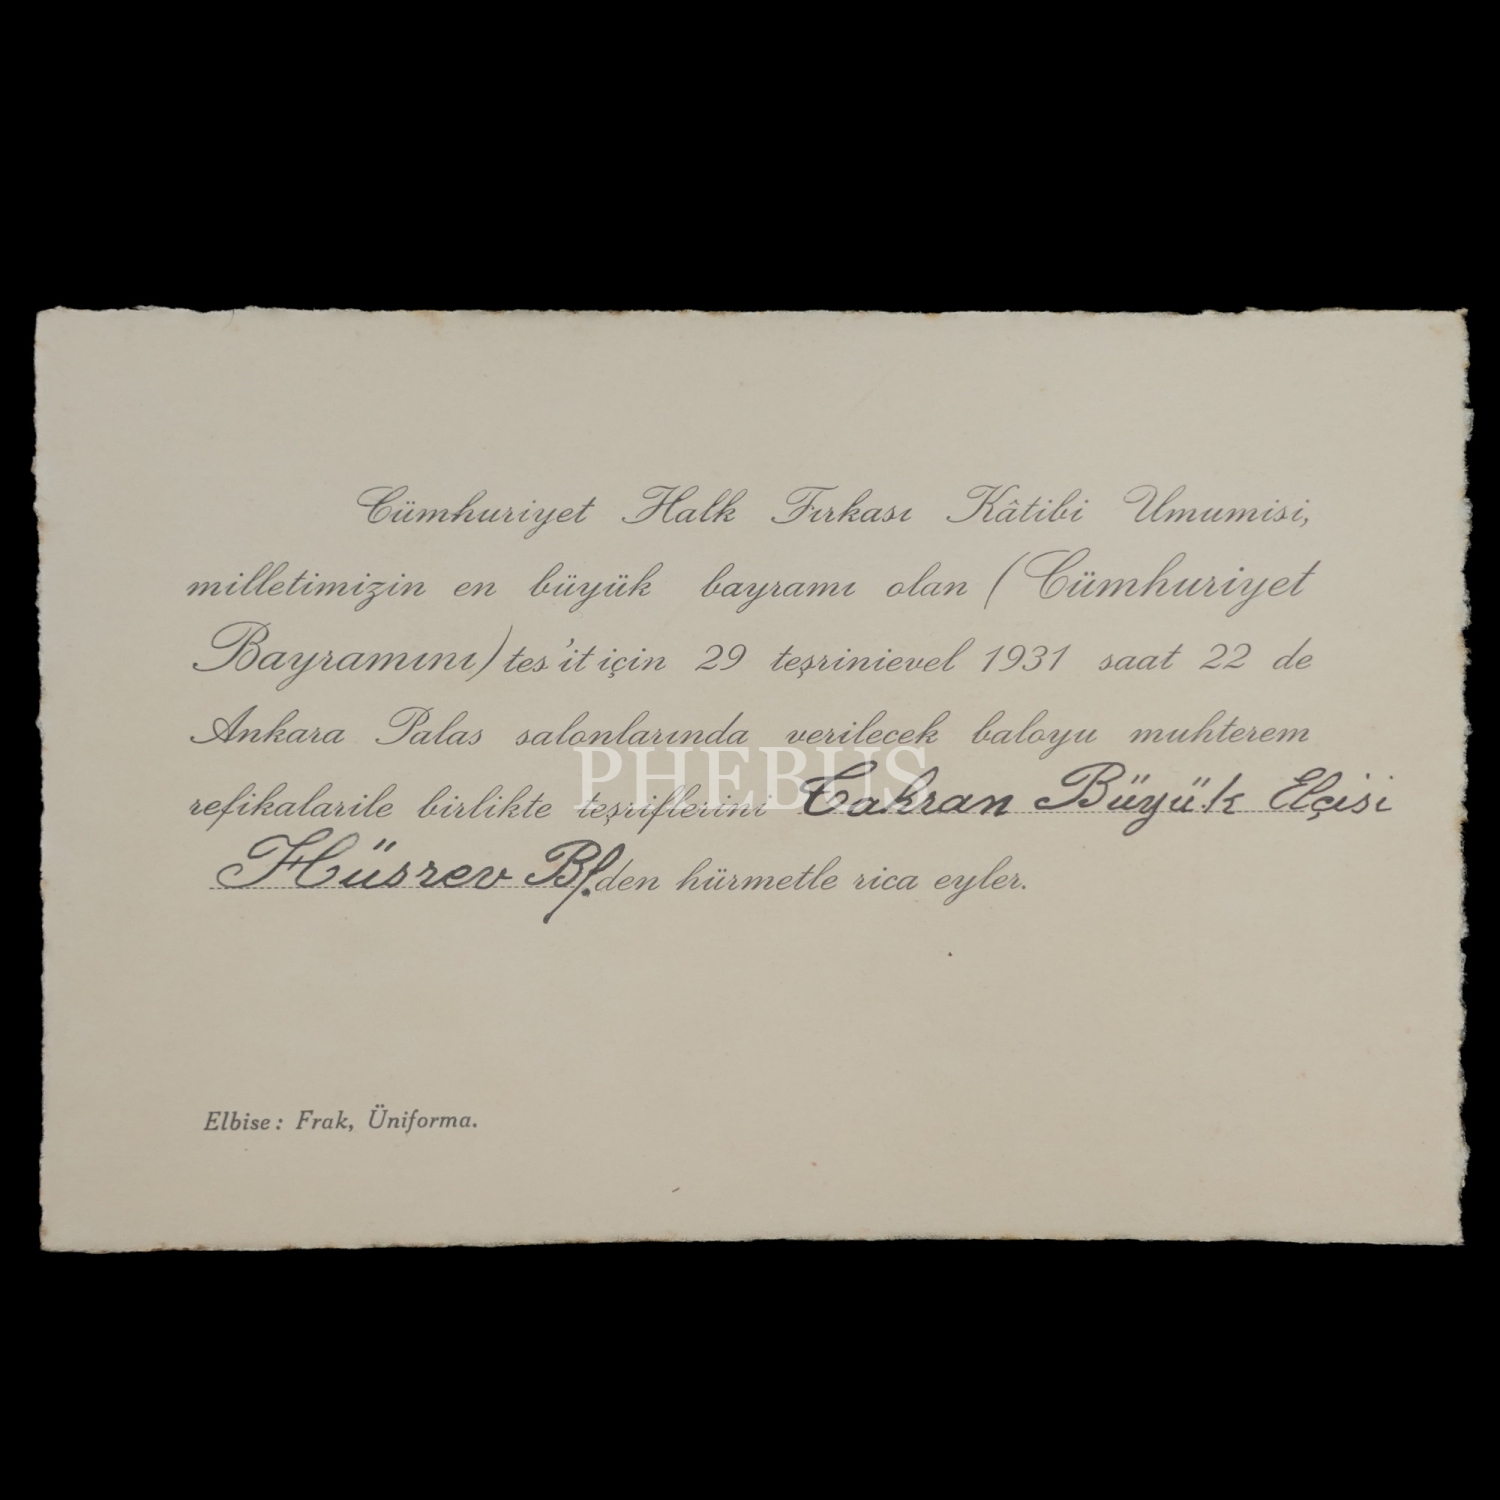 Cümhuriyet Halk Fırkası Kâtibi Umumisi,
milletimizin en büyük bayramı olan (Cümhuriyet
Bayramını) tes'it için 29 teşrinievel 1931 saat 22 de
Ankara Palas salonlarında verilecek baloyu muhterem
PHEBUS
refikalarile birlikte teşriflerini Tahran Büyük Elçisi
Hüsrev Bf. den hürmetle rica eyler.
Elbise: Frak, Üniforma.